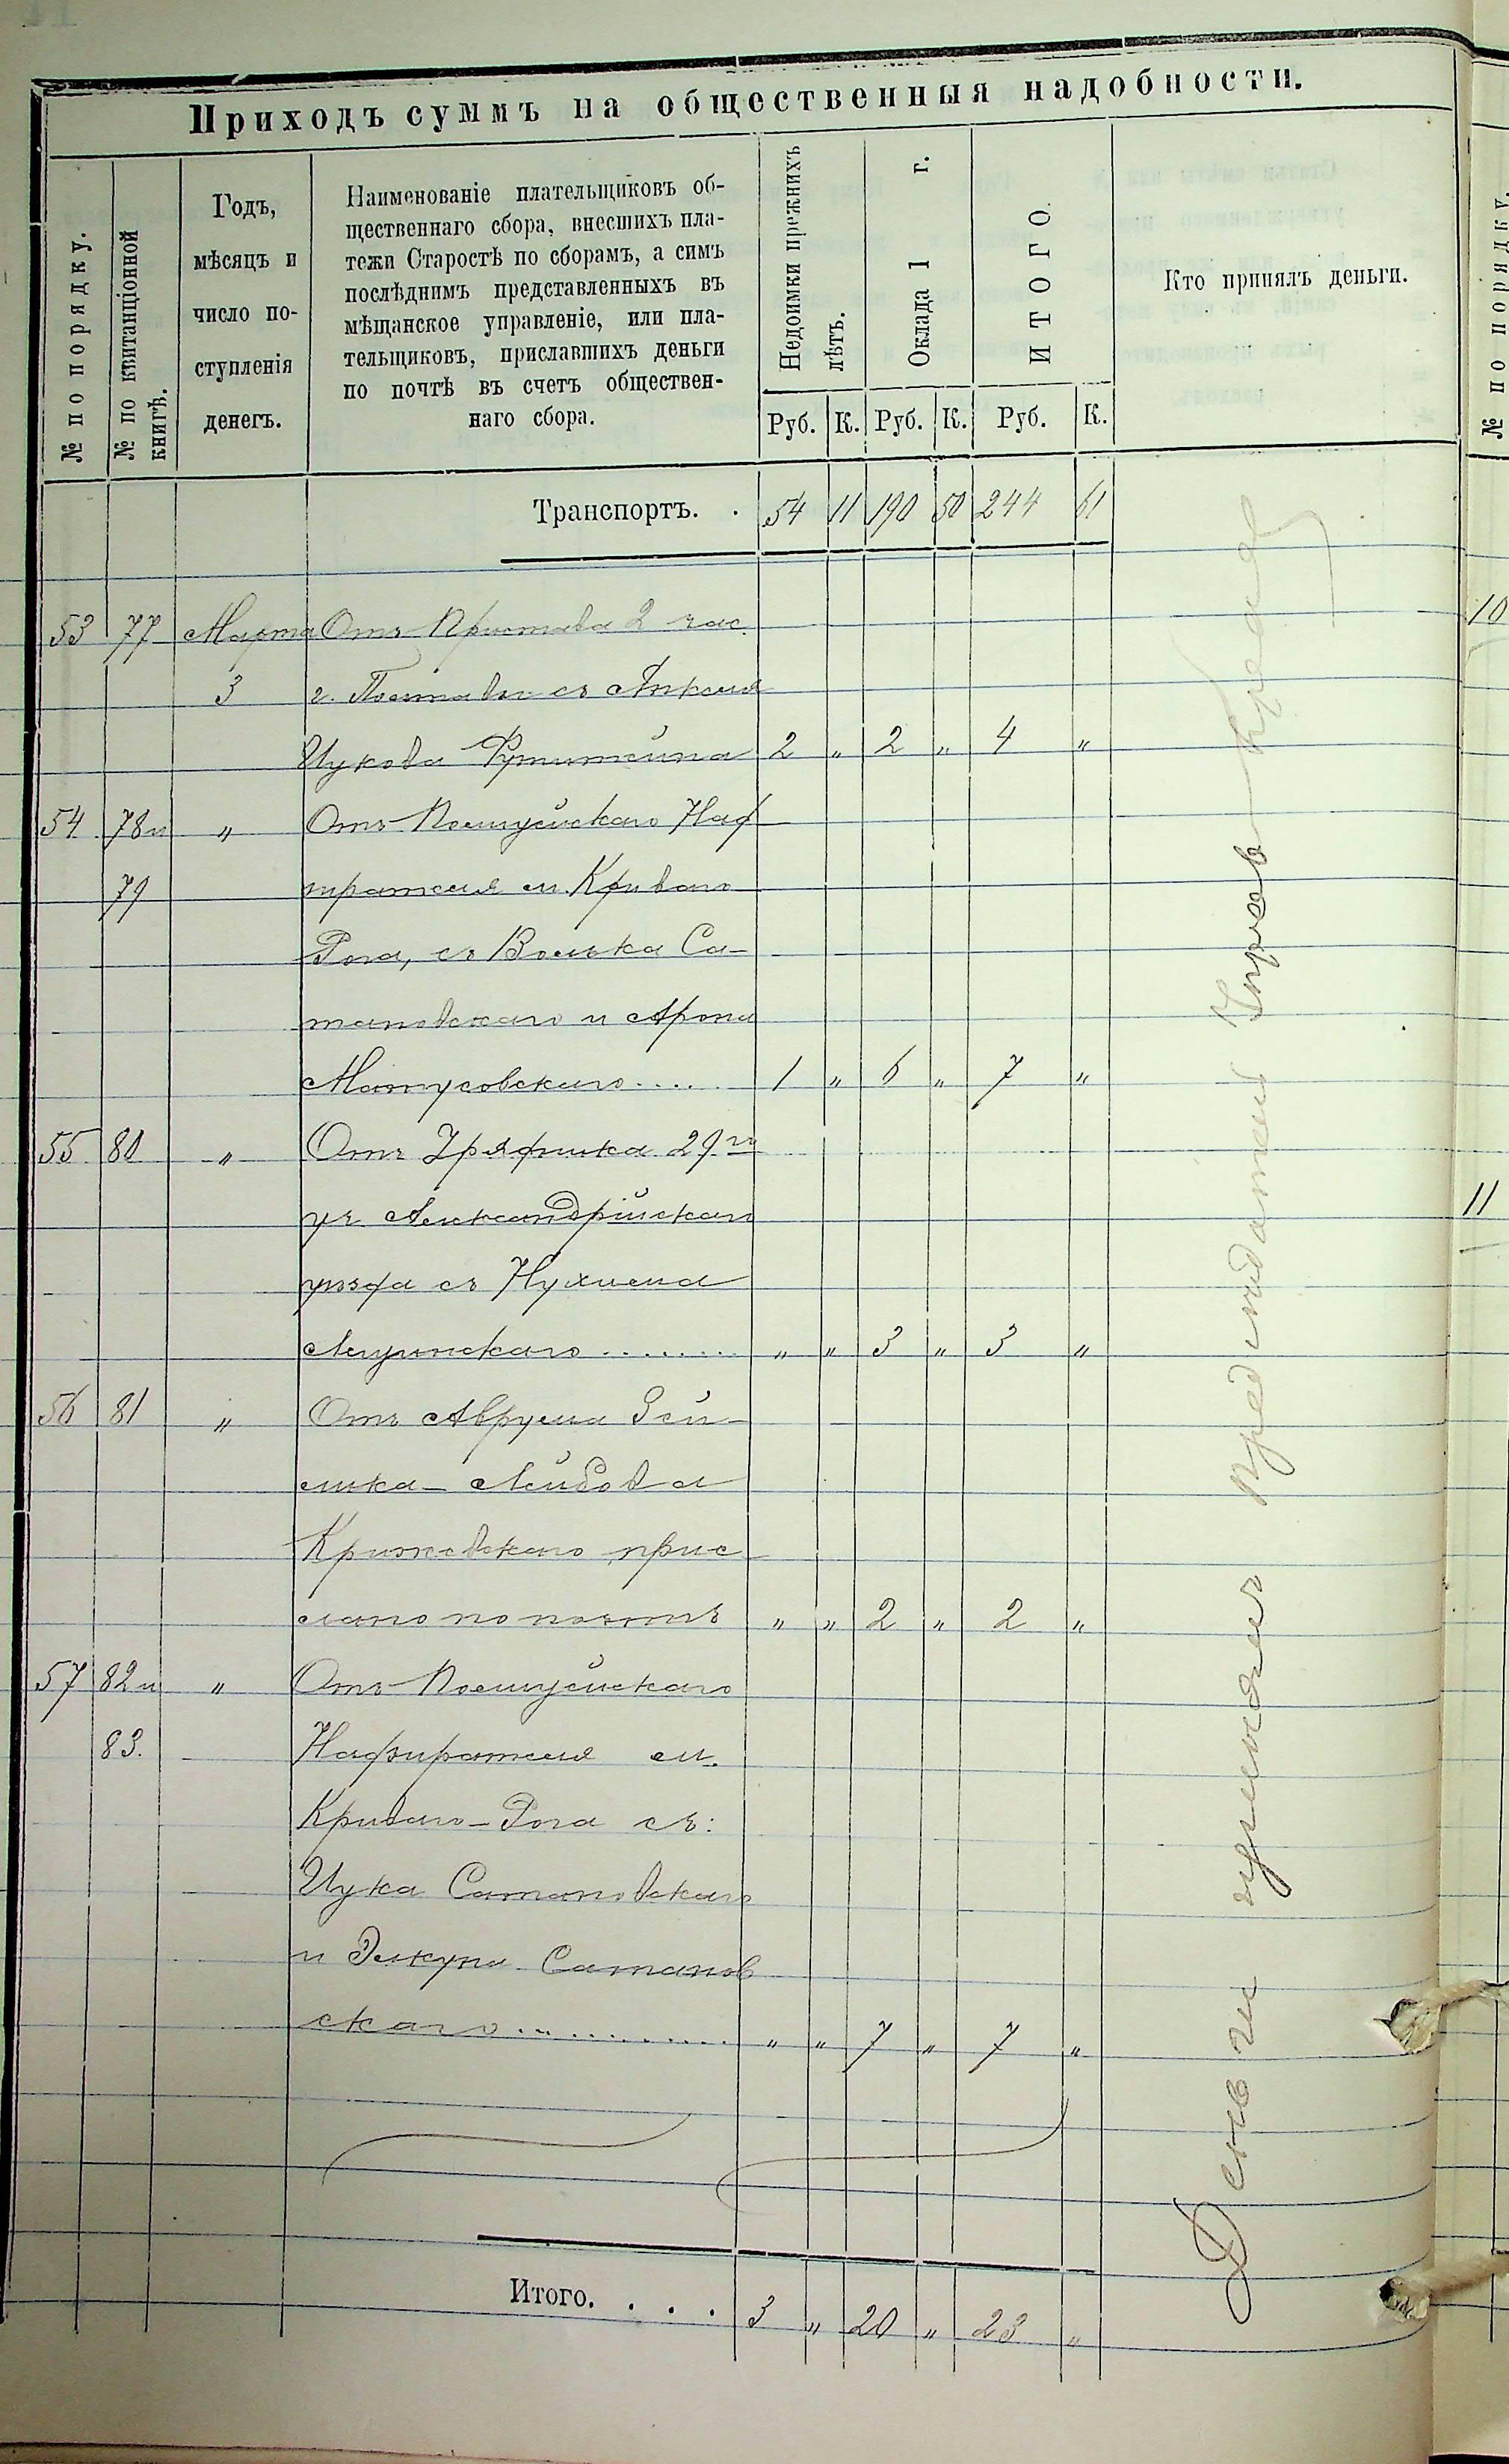 Приходъ суммъ на общественныя надобности.
№ по порядку.
№ по квитанціонной
книгѣ.
Годъ,
мѣсяцъ и
число по-
ступленія
денегъ.
Наименованіе плательщиковъ об-
щественнаго сбора, внесшихъ пла-
тежи Старостѣ по сборамъ, а симъ
послѣднимъ представленныхъ въ
мѣщанское управленіе, или пла-
тельщиковъ, приславшихъ деньги
по почтѣ въ счетъ обществен-
наго сбора.
Недоимки прежнихъ
лѣтъ.
Оклада 1 г.
ИТОГО
Кто принялъ деньги.
Руб. К. Руб. К. Руб. К.
Транспортъ. . 54 11 190 50 244 61
53 77 Марта Отъ Пристава 2 час.
3 г. Полтавы съ
Ицкова 2 „ 2 „ 4 „
54 78 и „ Отъ Полицейскаго Над
79 зирателя м. Криваго
Рога, съ Волька Са-
тановскаго и Арона
Матусовскаго..... 1 „ 6 „ 7 „
55 80 „ Отъ Урядника 29го
уч. Александрійскаго
уѣзда съ Нухима
........ „ „ 3 „ 3 „
56 81 „ Отъ Аврума Зей-
лика-Лейбова
Крижевскаго прис
лано по почтѣ „ „ 2 „ 2 „
57 82 и „ Отъ Полицейскаго
83. Надзирателя м.
Криваго-Рога съ:
Ицка Сатановскаго
и Сатанов
скаго............ „ „ 7 „ 7 „
Итого. . . . 3 „ 20 „ 23 „
Деньги принялъ
10
11
№ по порядку.